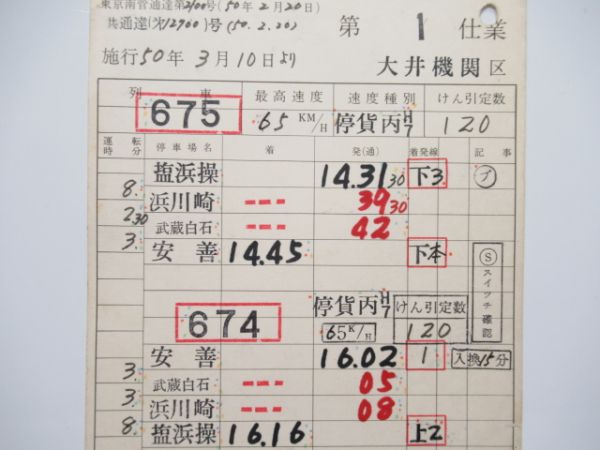 東京南管通達第2100号(50年2月20日)
共通達( 12700)号(50.2.20)
第 1 仕業
施行50年3月10日より
大井機関区
列車 最高速度 速度種別 けん引定数
675 65 KM/H 停貨丙 H7 120
運転時分 停車場名 着 発(通) 着発線 記事
塩浜操 14.31 30 下3
8. 浜川崎 --- 39 30
2 30 武蔵白石 --- 42
3. 安善 14.45 下本
Ⓢスイッチ確認
停貨丙 H7 けん引定数
674 65K/H 120
安善 16.02 1 入換15分
3. 武蔵白石 --- 05
3. 浜川崎 --- 08
8. 塩浜操 16.16 上2